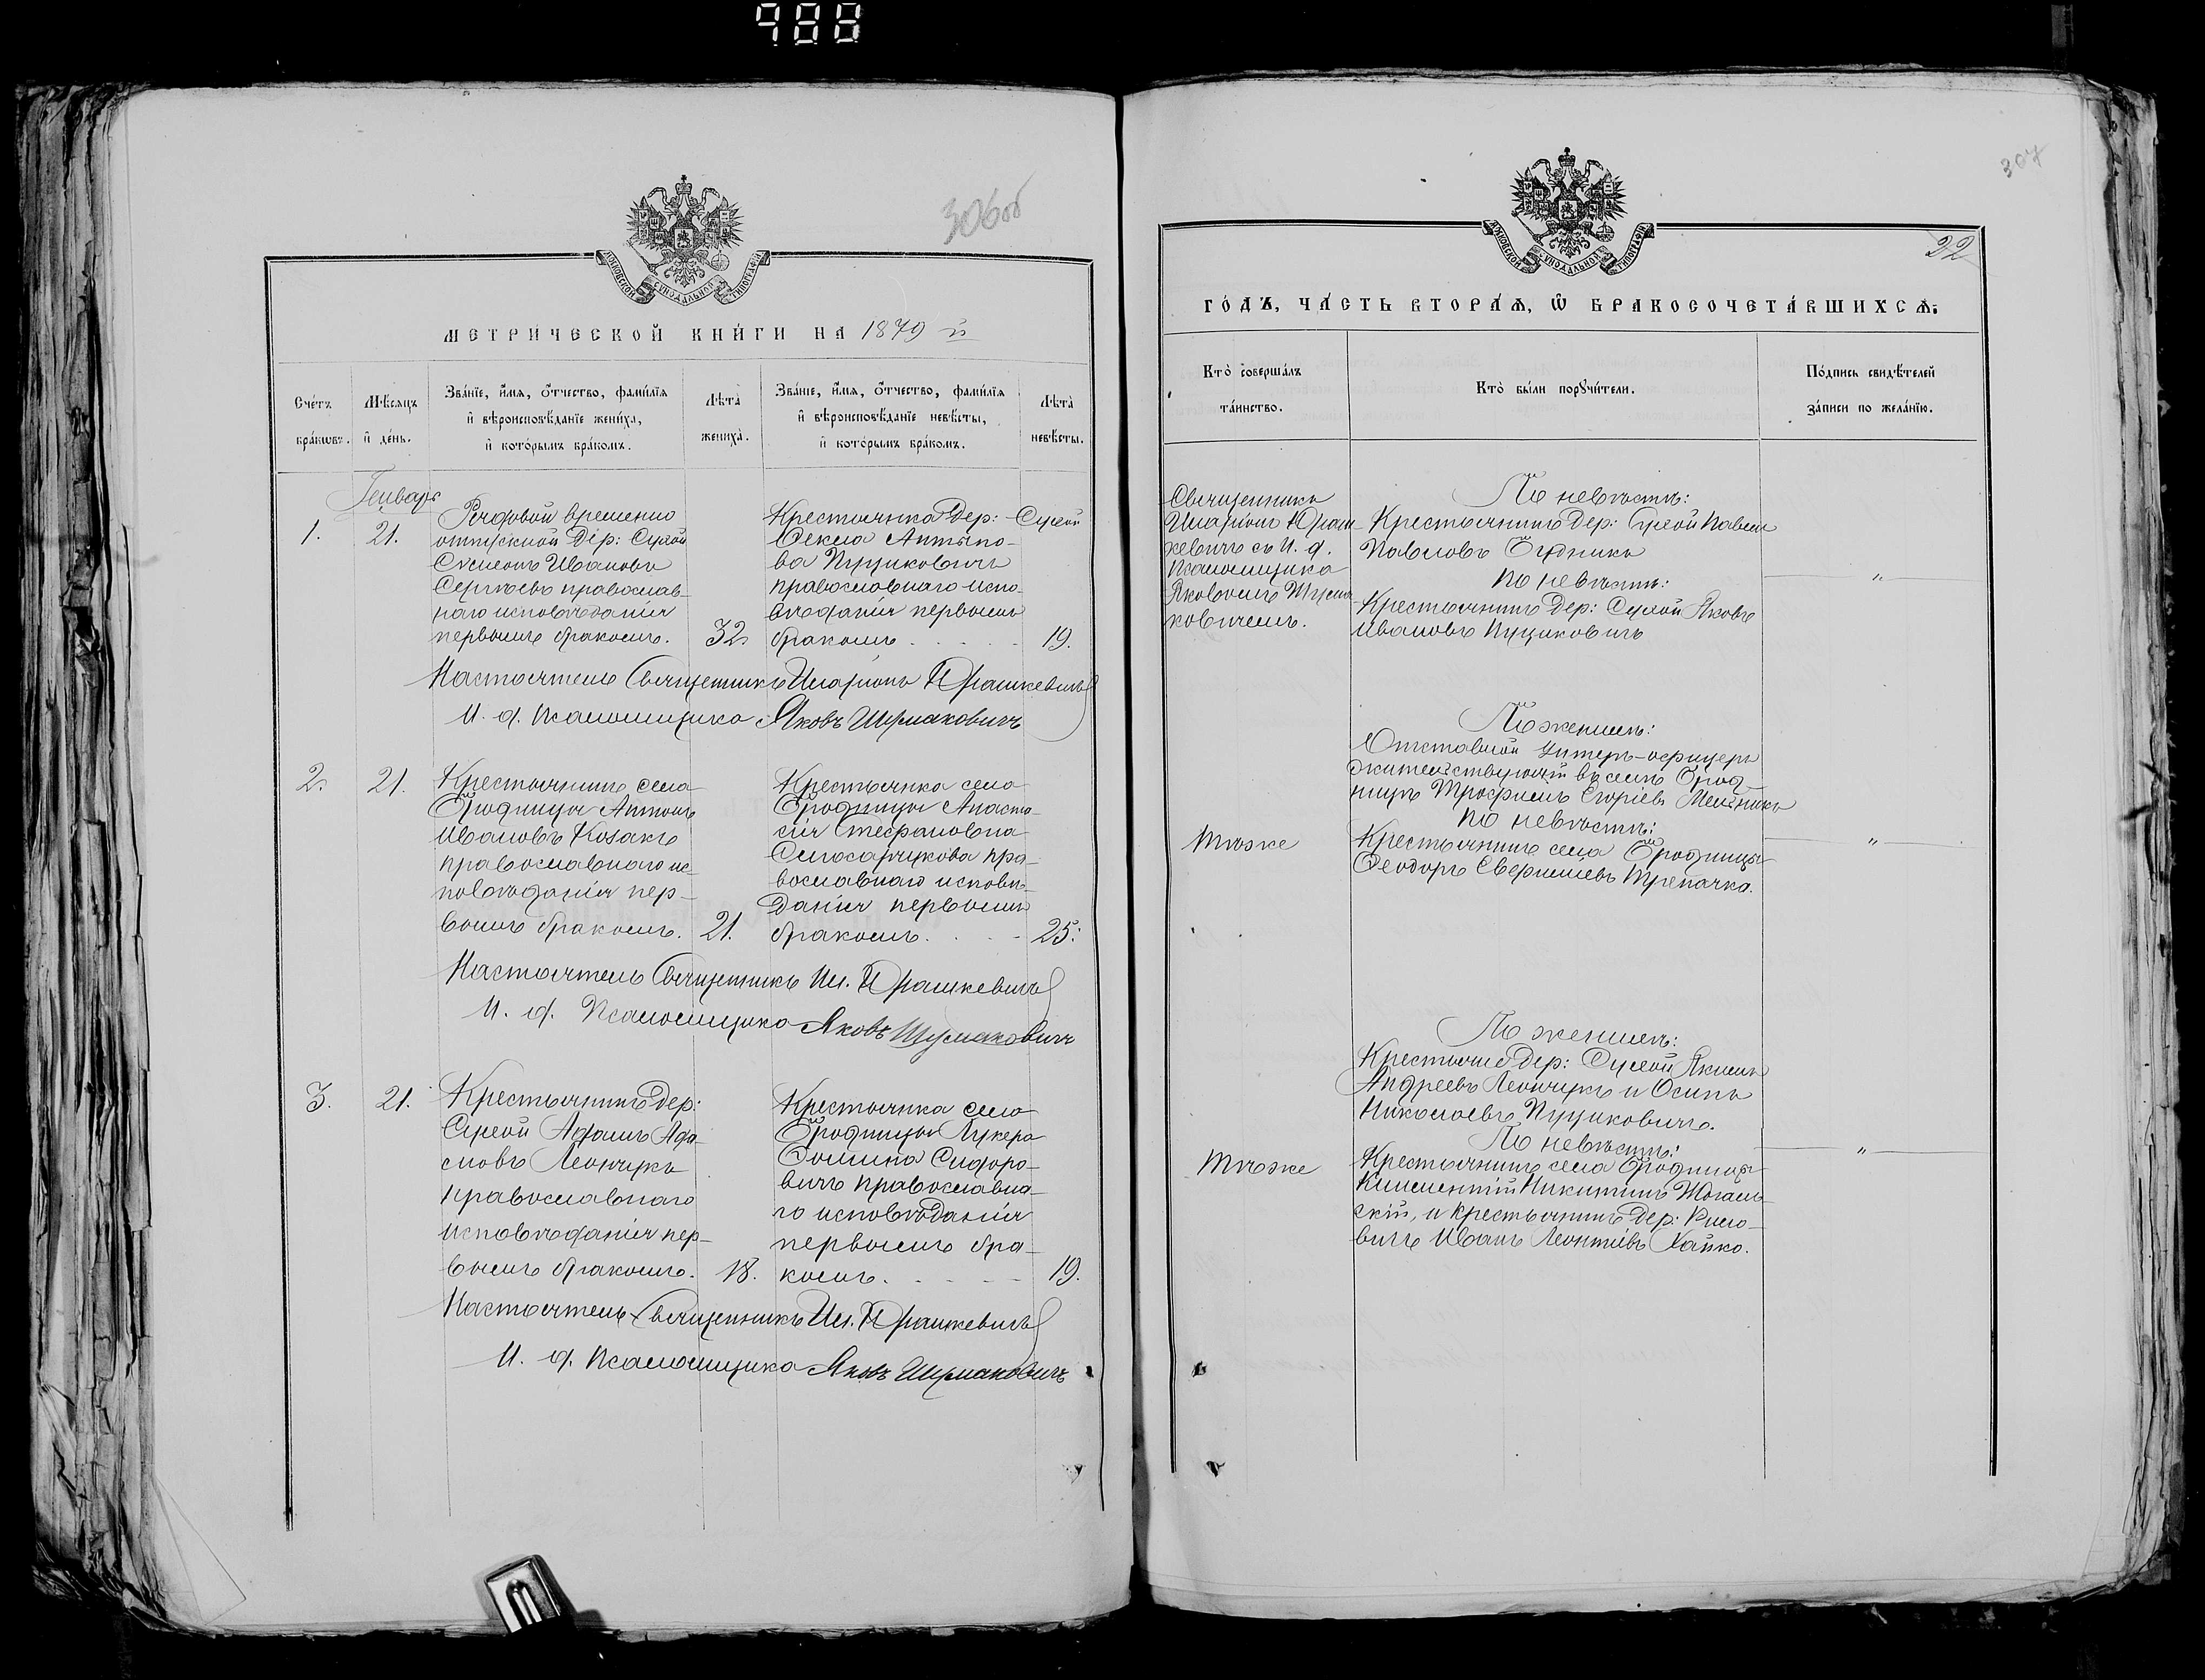 988
306об
МЕТРИ́ЧЕСКОЙ КНИ́ГИ НА 1879 й
Сче́тъ бра́ковъ.
Мѣ́сяцъ и҆ де́нь.
Зва́нїе, и҆́мѧ, ѻ҆́тчество, фами́лїѧ и҆ вѣроисповѣ́данїе жениха̀, и҆ кото́рымъ бра́комъ.
Лѣта̀ жениха̀.
Зва́нїе, и҆́мѧ, ѻ҆́тчество, фами́лїѧ и҆ вѣроисповѣ́данїе невѣ́сты, и҆ кото́рымъ бра́комъ.
Лѣта̀ невѣ́сты.
Генварь
1.
21.
Рядовой временно
отпускной дер: Сухой
Сѵмеонъ Ивановъ
Сергѣевъ православ-
наго исповѣданія
первымъ бракомъ.
32.
Крестьянка дер: Сухой
Ѳекла Антоно-
ва Пуциковичъ
православнаго испо-
вѣданія первымъ
бракомъ
19.
Настоятель Священникъ Иларіонъ Юрашкевичъ
И. д. Псаломщика Яковъ Шумаковичъ
2.
21.
Крестьянинъ села
Бродницы Антонъ
Ивановъ Козакъ
православнаго ис-
повѣданія пер-
вымъ бракомъ.
21.
Крестьянка села
Бродницы Анаста-
сія Стефановна
Слюсарчукова пра-
вославнаго исповѣ-
данія первымъ
бракомъ.
25.
Настоятель Священникъ Ил. Юрашкевичъ
И. д. Псаломщика Яковъ Шумаковичъ
3.
21.
Крестьянинъ дер:
Сухой Адамъ Ада-
мовъ Леончукъ
православнаго
исповѣданія пер-
вымъ бракомъ.
18.
Крестьянка села
Бродницы Лукера
Ѳомина Сидоро-
вичъ православна-
го исповѣданія
первымъ бра-
комъ.
19.
Настоятель Священникъ Ил. Юрашкевичъ
И. д. Псаломщика Яковъ Шумаковичъ
307
22
ГО́ДЪ, ЧА́СТЬ ВТОРА́Ѧ, Ѡ҆ БРАКОСОЧЕТА́ВШИХСѦ:
Кто̀ соверша́лъ та́инство.
Кто̀ бы́ли порꙋчи́тели.
По́дпись свидѣ́телей за́писи по жела́нїю.
Священникъ
Иларіонъ Юраш-
кевичъ съ И. д.
Псаломщика
Яковомъ Шума-
ковичемъ.
По невѣстѣ:
Крестьянинъ дер: Сухой Павелъ
Павловъ
По невѣстѣ:
Крестьянинъ дер: Сухой Яковъ
Ивановъ Пуциковичъ
"
Тѣже
По женихѣ:
Отставной унтеръ-офицеръ
жительствующій въ селѣ Брод-
ницѣ Трофимъ Егоріевъ Мельникъ
По невѣстѣ:
Крестьянинъ села Бродницы
Ѳеодоръ Трепачка.
"
Тѣже
По женихѣ:
Крестьяне дер: Сухой Якимъ
Андреевъ Леончукъ и Осипъ
Николаевъ Пуциковичъ.
По невѣстѣ:
Крестьянинъ села Бродницы
Климентій Никитинъ
скій, и крестьянинъ дер:
вичъ Иванъ Леонтіевъ Хайко.
"